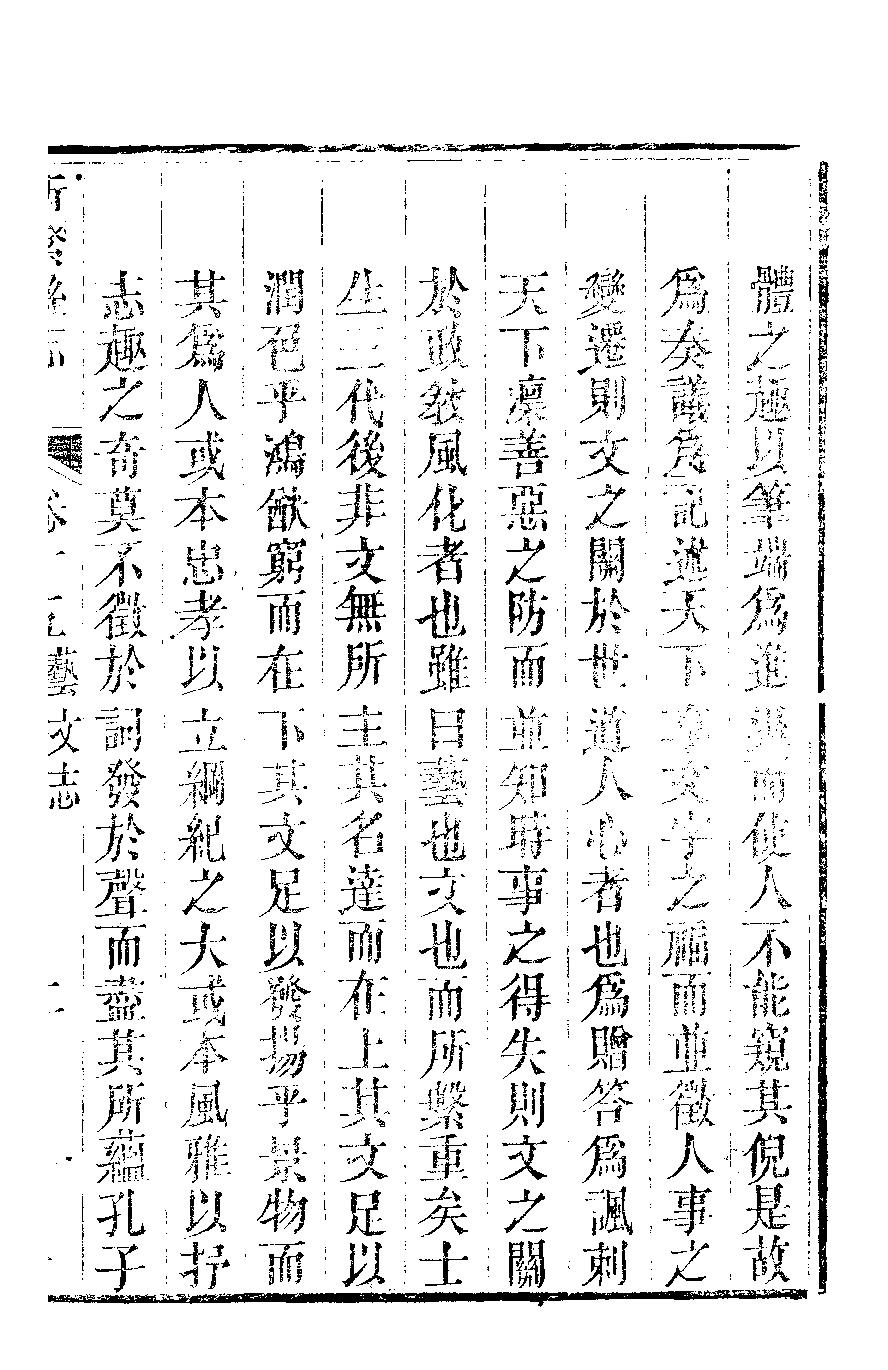 體之趣以筆端爲進退而使人不能窺其倪是故
爲奏議爲記述天下享文字之福而並徵人事之
變遷則文之關於世道人心者也爲贈答爲諷刺
天下凜善惡之防而並知時事之得失則文之關
於政教風化者也雖曰藝也文也而所繫重矣士
生三代後非文無所主其名達而在上其文足以
潤色乎鴻猷窮而在下其文足以發揚乎景物而
其爲人或本忠孝以立綱紀之大或本風雅以抒
志趣之奇莫不徵於詞發於聲而盡其所蘊孔子
藝文志